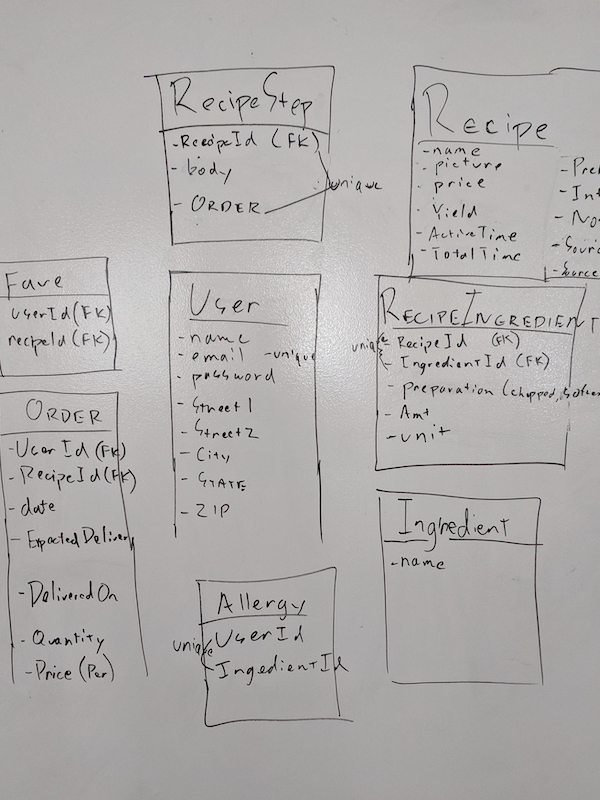 RecipeStep
-RecipeId (FK)
-body
-ORDER
unique
Recipe
-name
-picture
-price
-Yield
-ActiveTime
-TotalTime
-Sour
-Source
Fave
userId(FK)
recpeId(FK)
User
-name
-email -unique
-password
-Street1
-Street2
-City
-STATE
-ZIP
RECIPEINGREDIENT
unique
-RecipeId (FK)
-IngredientId (FK)
-preparation (chopped,
-Amt
-unit
ORDER
-UserId (FK)
-RecipeId(FK)
-date
-ExpectedDelivery
-DeliveredOn
-Quantity
-Price (Per)
Ingredient
-name
Allergy
unique
UserId
IngedientId